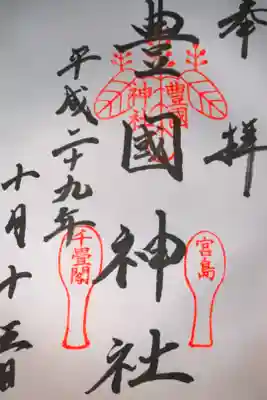 奉拝
豊國神社
豊國
神社
宮島
千畳閣
平成二十九年
十月十五日